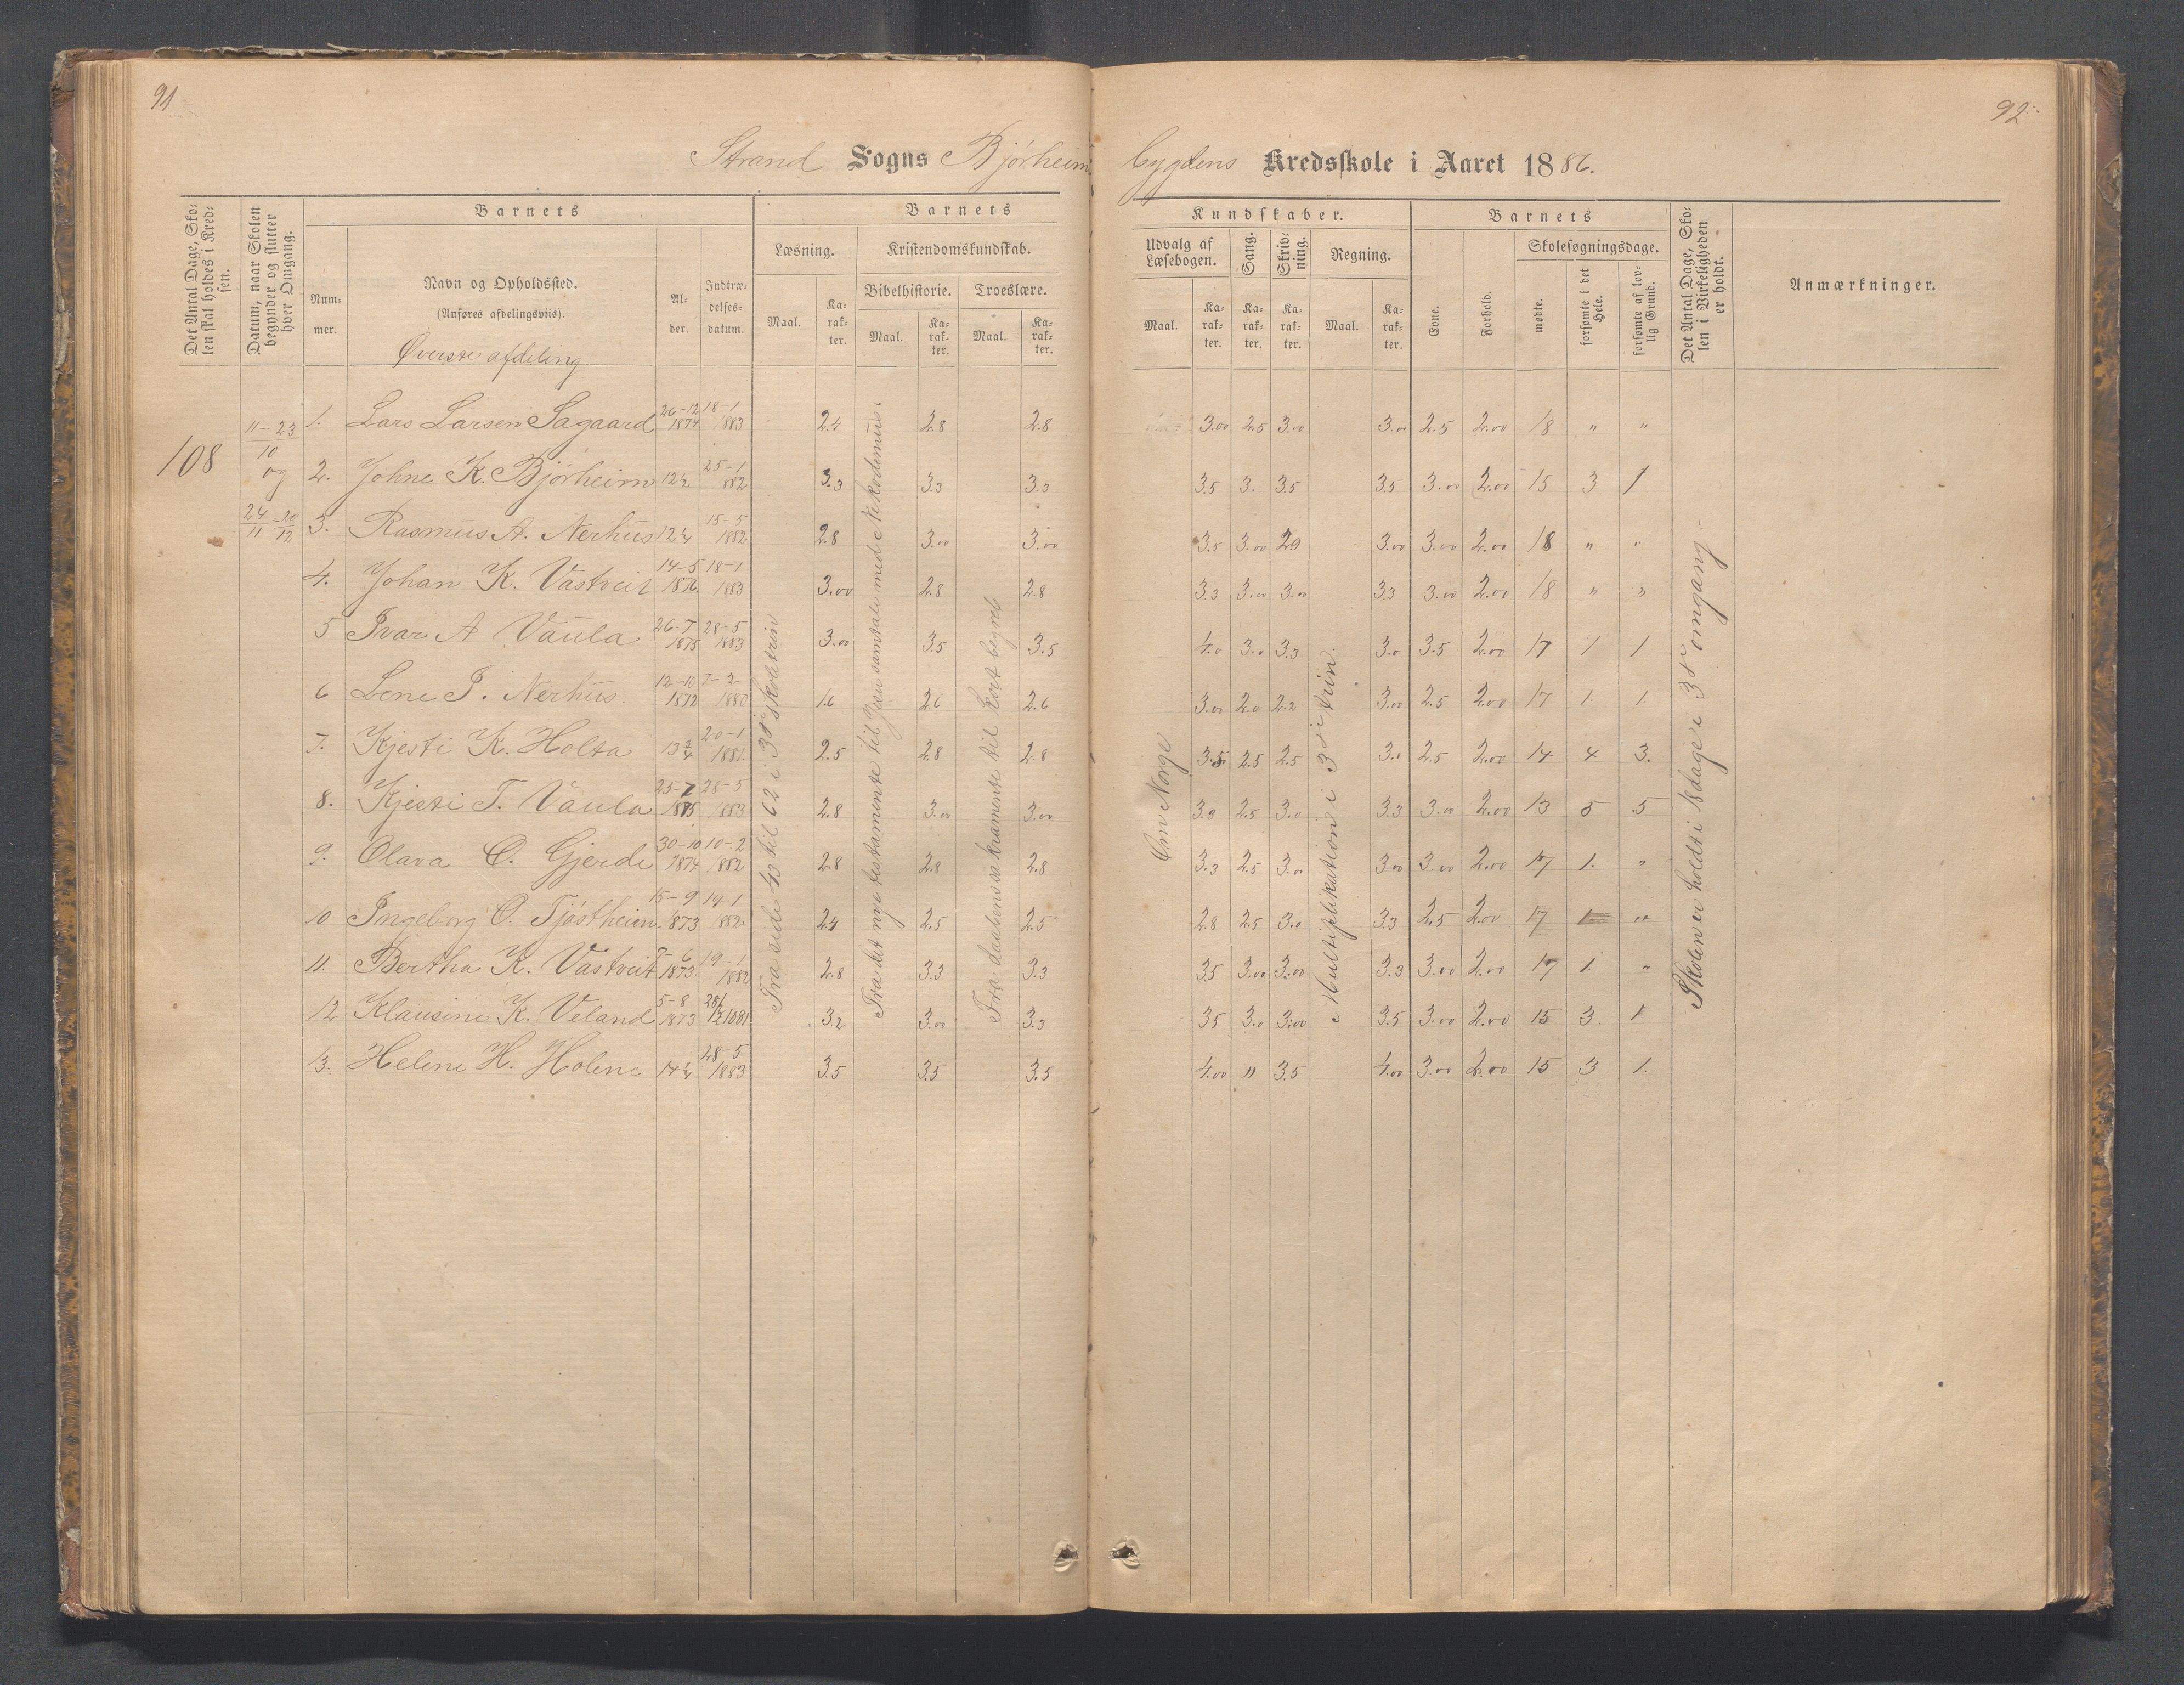 91
92.
Strand Sogns Bjørheimbygdens Kredsskole i Aaret 1886.
Det Antal Dage, Skolen skal holdes i Kredsen.
Datum, naar Skolen begynder og slutter hver Omgang.
Barnets
Nummer.
Navn og Opholdssted.
(Anføres afdelingsviis).
Øverste afdeling
Alder.
Indtrædelsesdatum.
Barnets
Læsning.
Maal.
Karakter.
Kristendomskundskab.
Bibelhistorie.
Maal.
Karakter.
Troeslære.
Maal.
Karakter.
Kundskaber.
Udvalg af Læsebogen.
Maal.
Karakter.
Sang.
Karakter.
Skrivning.
Karakter.
Regning.
Maal.
Karakter.
Barnets
Evne.
Forhold.
Skolesøgningsdage.
mødte.
forsømte i det Hele.
forsømte af lovlig Grund.
Det Antal Dage, Skolen i Virkeligheden er holdt.
Anmærkninger.
108
11-23
10
og
24/11 - 20/12
1. Lars Larsen Sagaard 26-12 1874 18-1 1883 2.4 2.8 2.8 3.00 2.5 3.00 3.00 2.5 2.00 18 " "
2. Johne K. Bjørheim 12½ 25-1 882 3.3 3.3 3.3 3.5 3. 3.5 3.5 3.00 2.00 15 3 1
3. Rasmus A. Nerhus 12¼ 15-5 1882 2.8 3.00 3.00 3.5 3.00 2.9 3.00 3.00 2.00 18 " "
4. Johan K. Västveit 14-5 1876 18-1 1883 3.00 2.8 2.8 3.3 3.00 3.00 3.3 3.00 2.00 18 " "
5 Ivar A Vaula 26-7 1875 28-5 1883 3.00 3.5 3.5 4.0 3.0 3.3 3.0 3.5 2.00 17 1 1
6 Lene P. Nerhus. 12-10 1872 7-2 1880 1.6 2.6 2.6 3.00 2.0 2.2 3.00 2.5 2.00 17 1. 1.
7. Kjesti K. Holta 13¾ 20-1 1881. 2.5 2.8 2.8 3.5 2.5 2.5 3.0 2.5 2.00 14 4 3.
8. Kjesti T. Vaula 25-7 1875 28-5 1883 2.8 3.00 3.00 3.3 2.5 3.0 3.3 3.00 2.00 13 5 5
9. Olava O. Gjerde 30-10 1874 10-2 1882 2.8 2.8 2.8 3.3 2.5 3.00 3.00 3.00 2.00 17 1. "
10 Ingeborg O. Tjöstheim 15-9 1873 14-1 882 2.4 2.5 2.5 2.8 2.5 3.0 3.3 2.5 2.00 17 1 "
11. Bertha K. Västveit 1873. 19-1 1882 2.8 3.3 3.3 3.5 3.00 3.00 3.3 3.00 2.00 17 1. "
12 Klausine K. Veland 5-8 1873 3.2 3.00 3.3 3.5 3.0 3.00 3.5 3.00 2.00 15 3. 1.
13. Helene H. Holene 14¼ 28-5 1883 3.5 3.5 3.5 4.00 " 3.5 4.00 3.00 2.00 15 3 1.
Fra side 43 til 62 i 3die skoletrin
Fra det nye testamente til Jesu samtale med Nikodemus.
Fra daabens sakramente til kort begreb
Om Norge
Multiplikation i 3die trin.
Skolen er holdt i 18 dage i 3die omgang